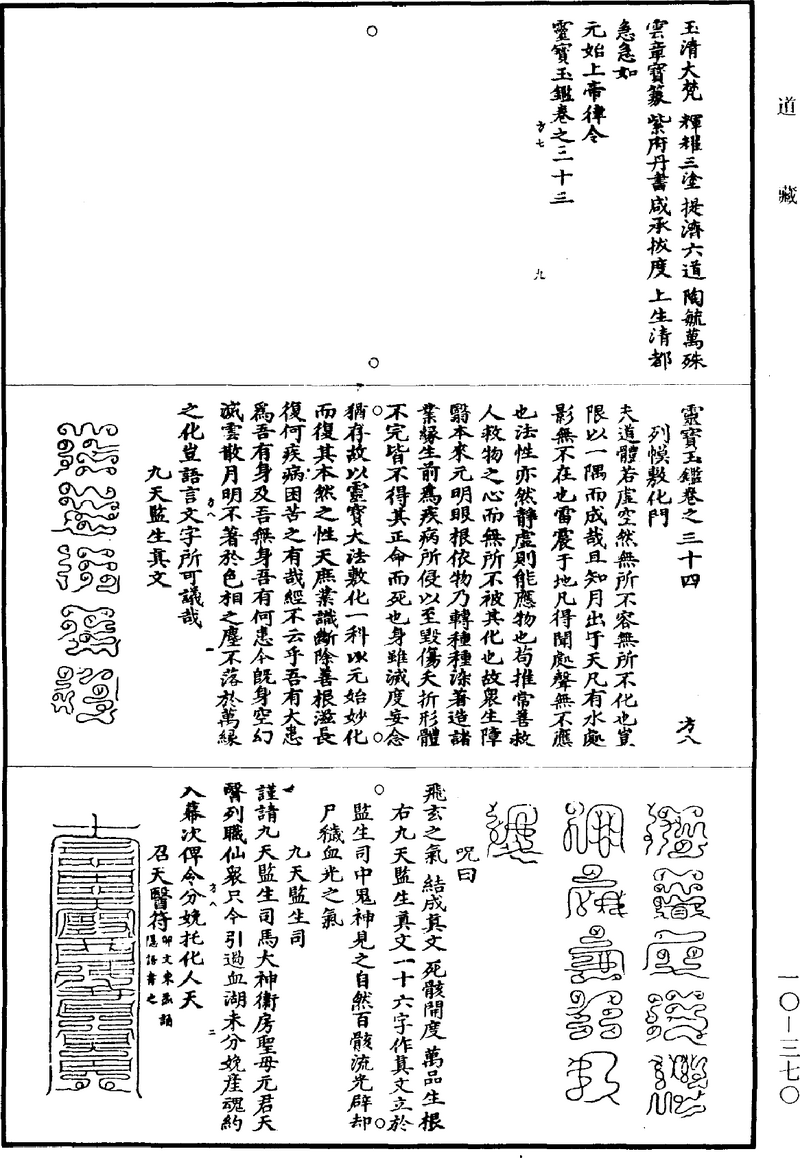 道藏
玉清大梵 輝耀三塗 提濟六道 陶毓萬殊
雲章寶篆 紫府丹書 咸承拔度 上生清都
急急如
元始上帝律令
靈寶玉鑑卷之三十三
方七
九
靈寶玉鑑卷之三十四
方八
列幙敷化門
夫道體若虛空然無所不容無所不化也豈
限以一隅而成哉且知月出于天凡有水處
影無不在也雷震于地凡得聞處聲無不應
也法性亦然靜虛則能應物也苟推常善救
人救物之心而無所不被其化也故衆生障
翳本來元明眼根依物乃轉種種染著造諸
業緣生前爲疾病所侵以至毀傷夭折形體
不完皆不得其正命而死也身雖滅度妄念
猶存故以靈寶大法敷化一科以元始妙化
而復其本然之性天庶業識斷除善根滋長
復何疾病困苦之有哉經不云乎吾有大患
爲吾有身及吾無身吾有何患今既身空幻
滅雲散月明不著於色相之塵不落於萬緣
方八
一
之化豈語言文字所可議哉
九天監生真文
呪曰
飛玄之氣 結成真文 死骸開度 萬品生根
右九天監生真文一十六字作真文立於
監生司中鬼神見之自然百骸流光辟却
尸穢血光之氣
九天監生司
謹請九天監生司馬大神衛房聖母元君天
醫列職仙衆只今引過血湖未分娩產魂約
方八
二
入幕次俾令分娩托化人天
召天醫符
隱語書之
一〇—三七〇